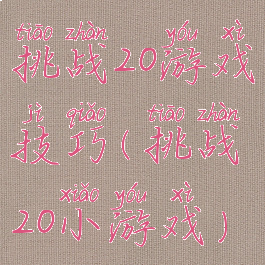 tiāo zhàn yóu xì
挑战20游戏
jì qiǎo tiāo zhàn
技巧(挑战
xiǎo yóu xì
20小游戏)